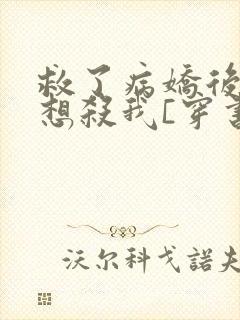 救了病嬌後
想殺我[穿書
沃尔科戈諾夫